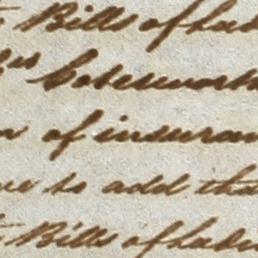 Bills of lad
Coteswort
of insuran
to add that
Bills of laden